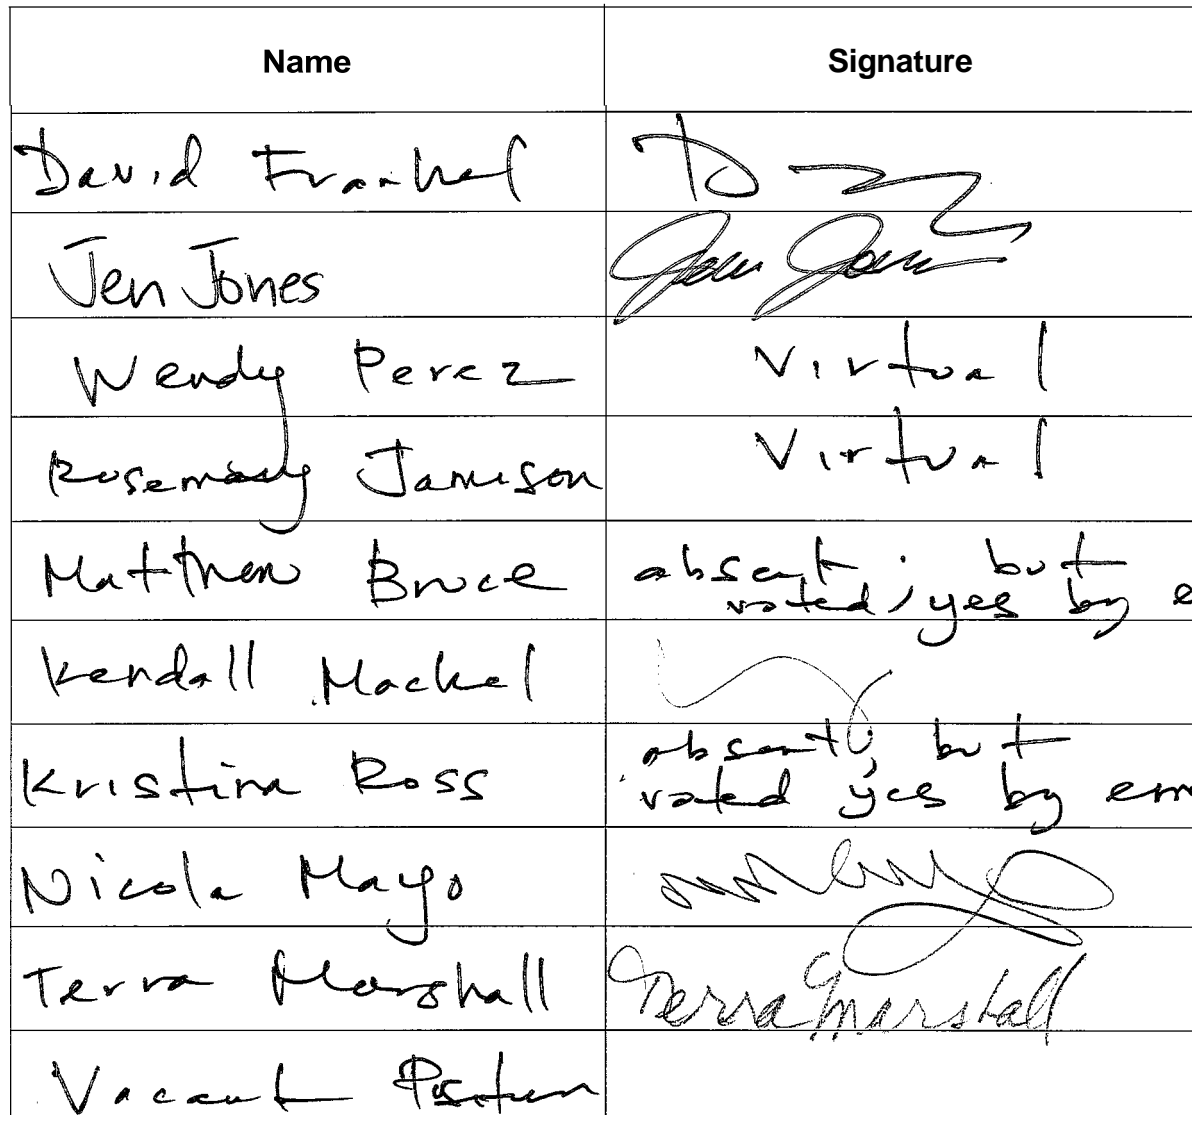 Name Signature
David Frankel
Jen Jones Jen Jones
Wendy Perez Virtual
Rosemary Jamieson Virtual
Matthew Bruce absent, but
voted yes by e
Kendall Mackel
Kristina Ross absent, but
voted yes by em
Nicola Mayo
Terra Marshall Terra Marshall
Vacant Position